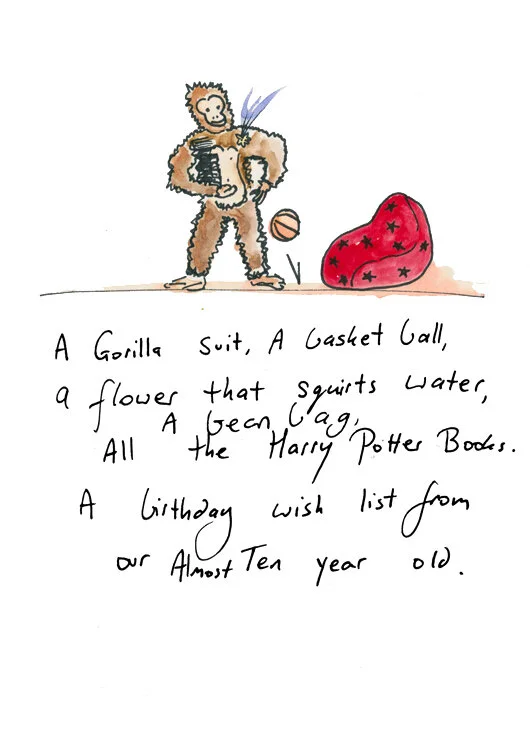 A Gorilla suit, A basket ball,
a flower that squirts water,
A bean bag,
All the Harry Potter Books.
A birthday wish list from
our Almost Ten year old.